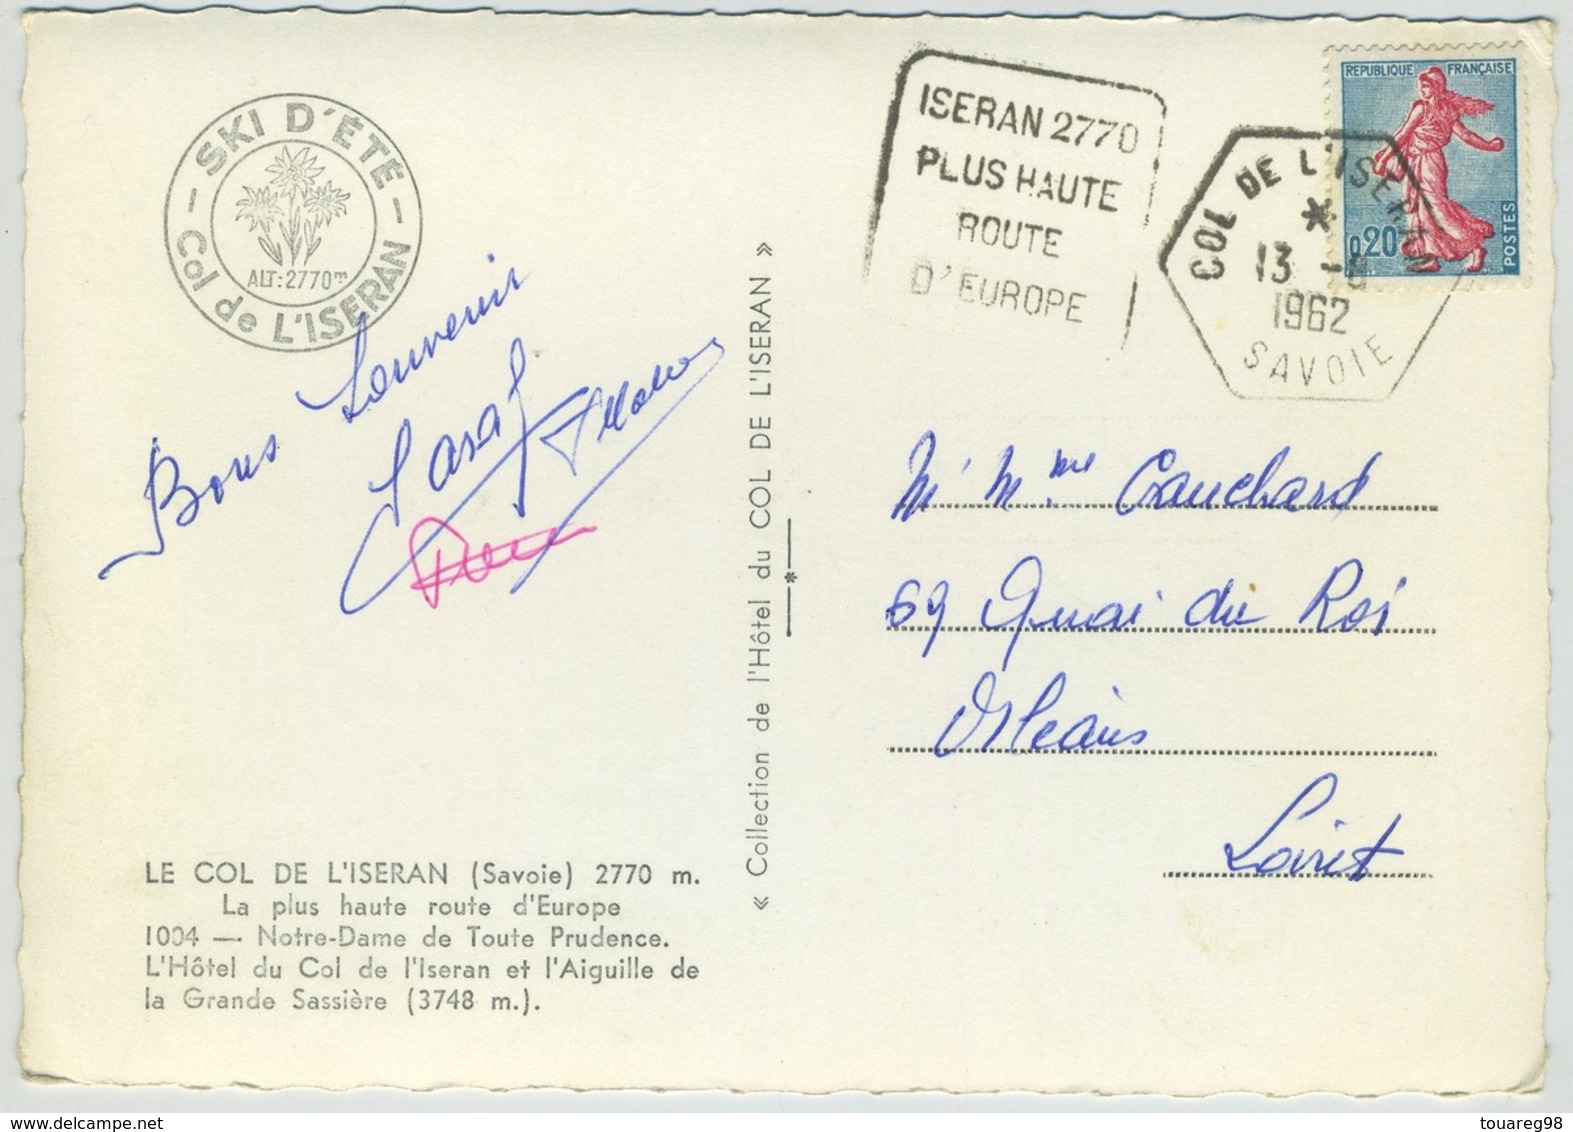 SKI D'ÉTÉ
ALT: 2770m
Col de L'ISERAN
Bons Souvenir
LE COL DE L'ISERAN (Savoie) 2770 m.
La plus haute route d'Europe
1004 — Notre-Dame de Toute Prudence.
L'Hôtel du Col de l'Iseran et l'Aiguille de
la Grande Sassière (3748 m.).
« Collection de l'Hôtel du COL DE L'ISERAN »
ISERAN 2770
PLUS HAUTE
ROUTE
D'EUROPE
COL DE L'ISERAN
13
1962
SAVOIE
REPUBLIQUE FRANÇAISE
0,20
POSTES
M. Mme Cauchard
69 Quai du Roi
Orléans
Loiret
touareg98